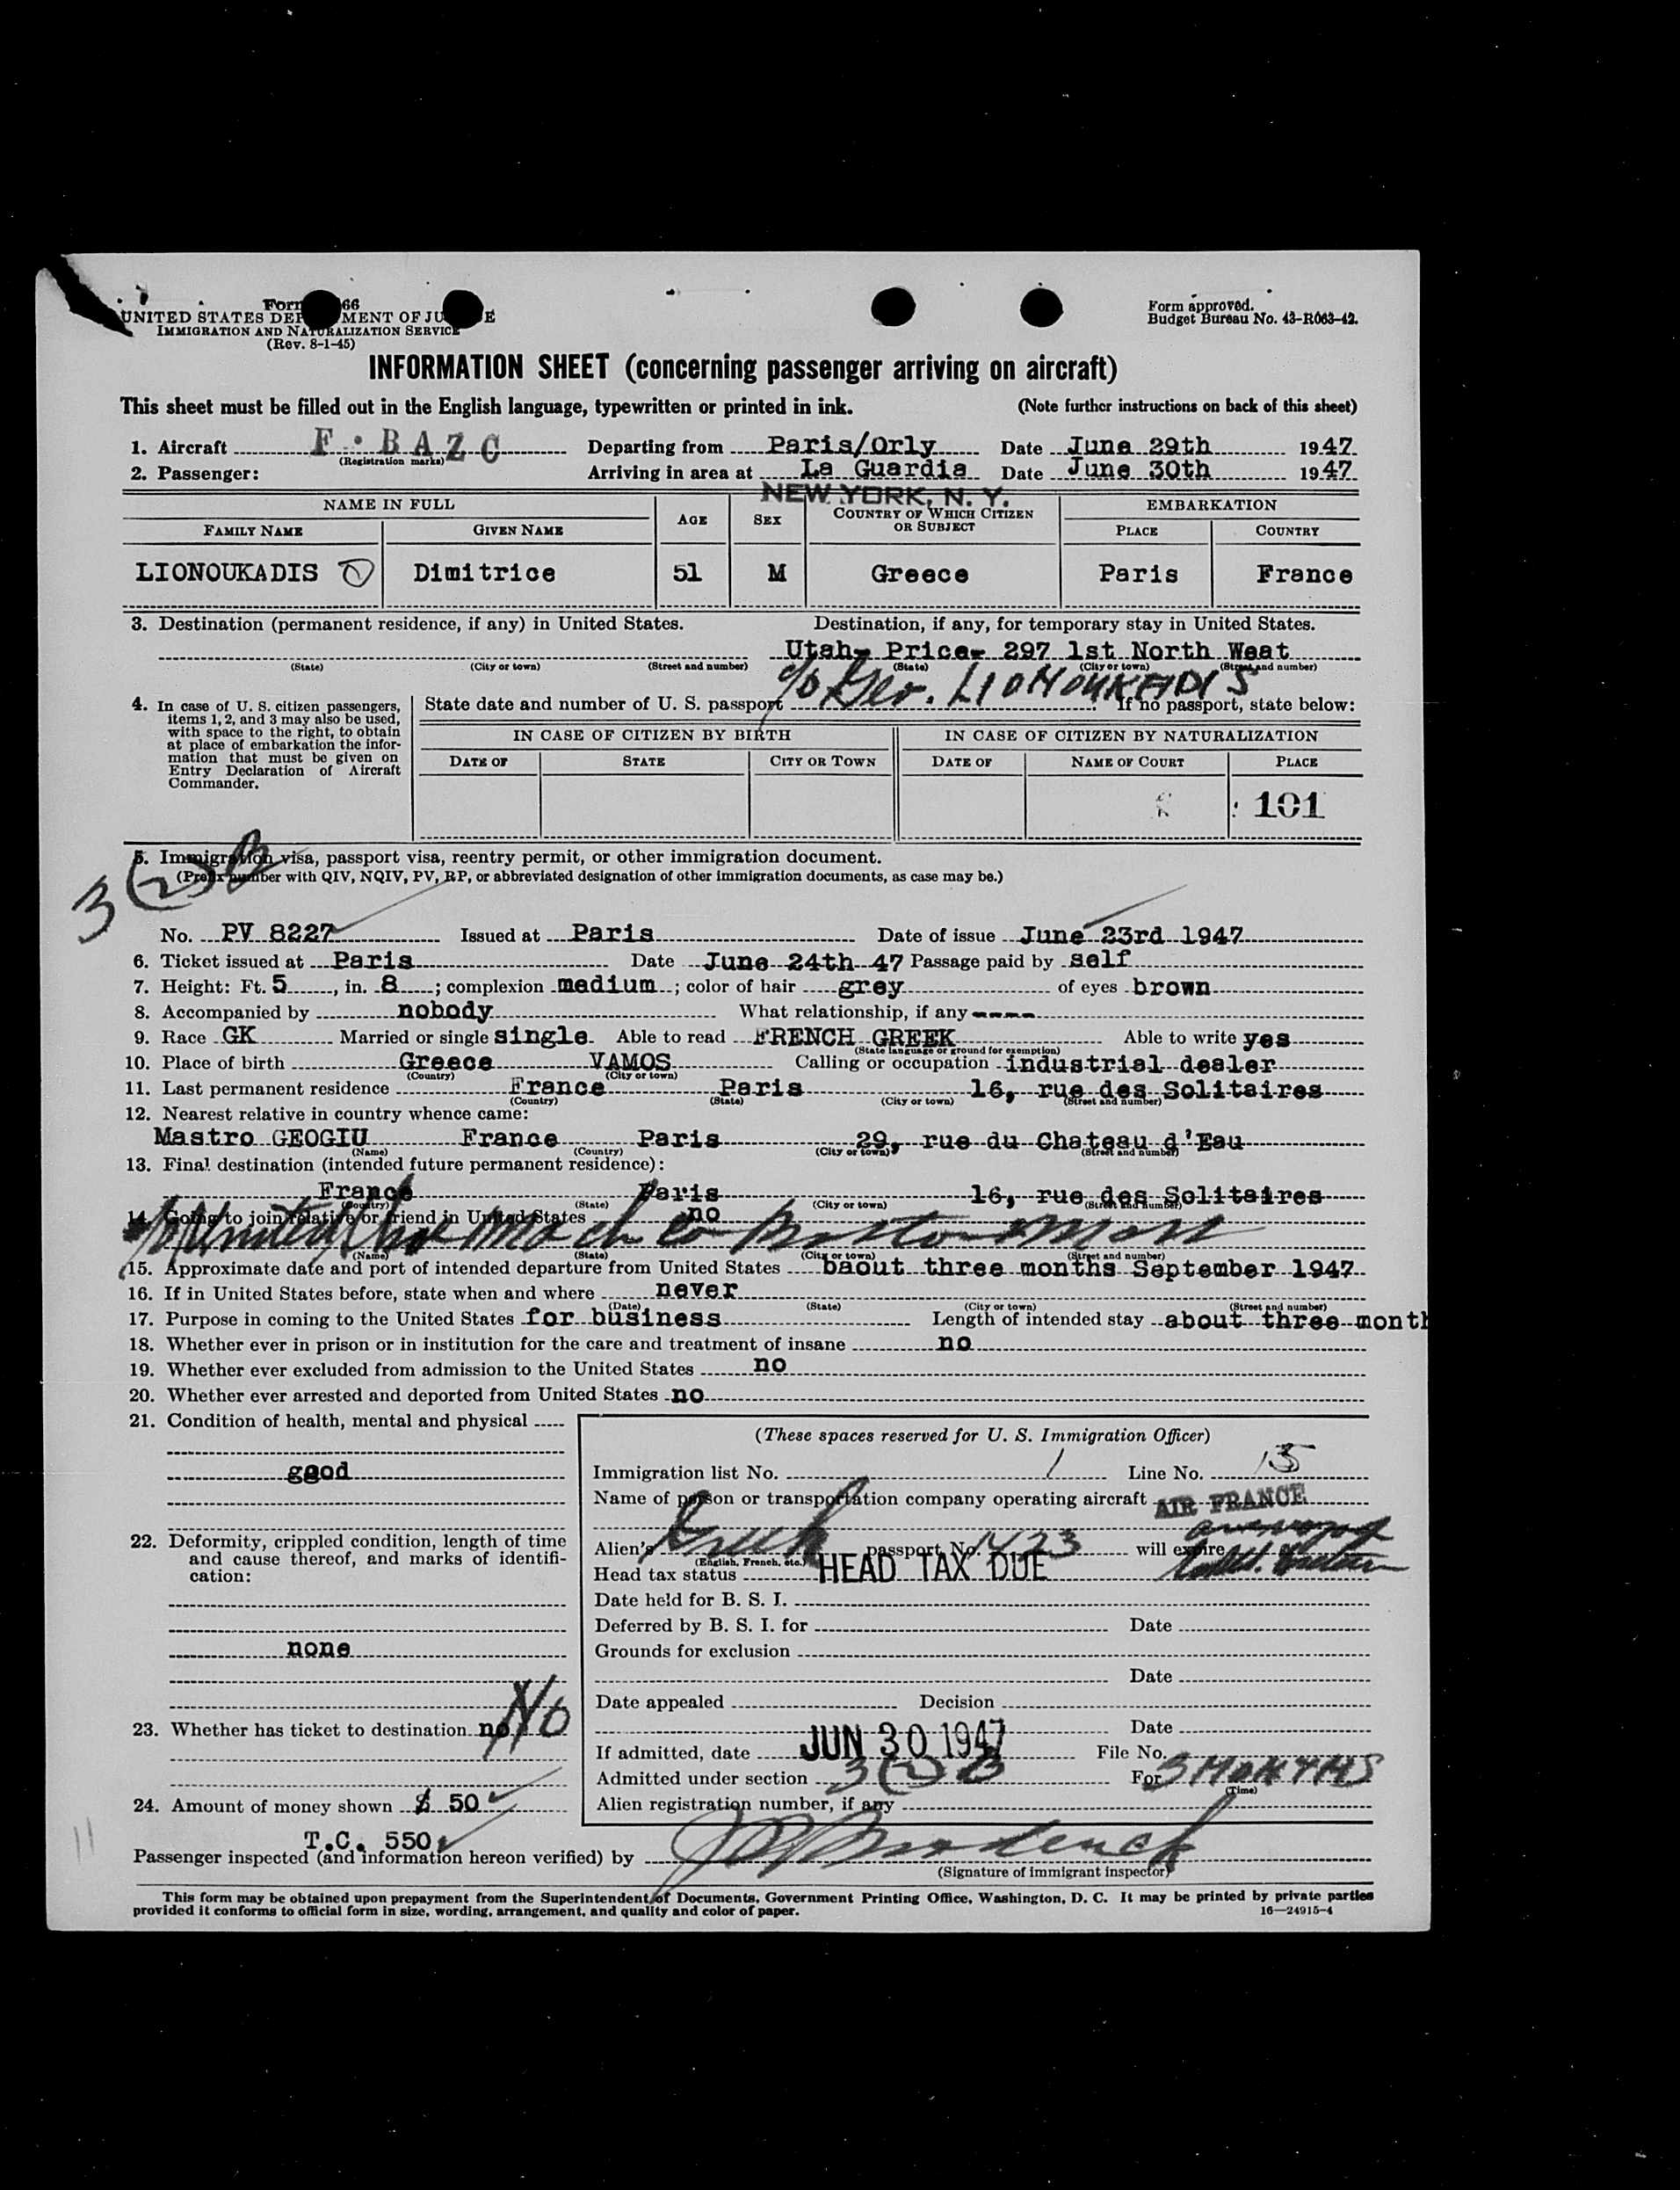 Form 66
UNITED STATES DEP MENT OF JU E
IMMIGRATION AND NATURALIZATION SERVICE
(Rev. 8-1-45)
Form approved.
Budget Bureau No. 43-R063-42.
INFORMATION SHEET (concerning passenger arriving on aircraft)
This sheet must be filled out in the English language, typewritten or printed in ink. (Note further instructions on back of this sheet)
1. Aircraft F.BAZC Departing from Paris/Orly Date June 29th 1947
(Registration marks)
2. Passenger: Arriving in area at La Guardia Date June 30th 1947
NEW YORK, N. Y.
NAME IN FULL AGE SEX COUNTRY OF WHICH CITIZEN OR SUBJECT EMBARKATION
FAMILY NAME GIVEN NAME PLACE COUNTRY
LIONOUKADIS Dimitrice 51 M Greece Paris France
3. Destination (permanent residence, if any) in United States. Destination, if any, for temporary stay in United States.
Utah- Price- 297 1st North Weat
(State) (City or town) (Street and number) (State) (City or town) (Street and number)
c/o Geo. LIONOUKADIS
4. In case of U. S. citizen passengers, items 1, 2, and 3 may also be used, with space to the right, to obtain at place of embarkation the information that must be given on Entry Declaration of Aircraft Commander.
State date and number of U. S. passport If no passport, state below:
IN CASE OF CITIZEN BY BIRTH IN CASE OF CITIZEN BY NATURALIZATION
DATE OF STATE CITY OR TOWN DATE OF NAME OF COURT PLACE
101
5. Immigration visa, passport visa, reentry permit, or other immigration document.
(Prefix number with QIV, NQIV, PV, RP, or abbreviated designation of other immigration documents, as case may be.)
3(2)B
No. PV 8227 Issued at Paris Date of issue June 23rd 1947
6. Ticket issued at Paris Date June 24th 47 Passage paid by self
7. Height: Ft. 5, in. 8; complexion medium; color of hair grey of eyes brown
8. Accompanied by nobody What relationship, if any ----
9. Race GK Married or single single Able to read FRENCH GREEK Able to write yes
(State language or ground for exemption)
10. Place of birth Greece VAMOS Calling or occupation industrial dealer
(Country) (City or town)
11. Last permanent residence France Paris 16, rue des Solitaires
(Country) (State) (City or town) (Street and number)
12. Nearest relative in country whence came:
Mastro GEOGIU France Paris 29, rue du Chateau d'Eau
(Name) (Country) (City or town) (Street and number)
13. Final destination (intended future permanent residence):
France Paris 16, rue des Solitaires
(Country) (State) (City or town) (Street and number)
14. Going to join relative or friend in United States no
c/o United Shoe Mach Co Boston Mass
(Name) (State) (City or town) (Street and number)
15. Approximate date and port of intended departure from United States baout three months September 1947
16. If in United States before, state when and where never
(Date) (State) (City or town) (Street and number)
17. Purpose in coming to the United States for business Length of intended stay about three month
18. Whether ever in prison or in institution for the care and treatment of insane no
19. Whether ever excluded from admission to the United States no
20. Whether ever arrested and deported from United States no
21. Condition of health, mental and physical
good
22. Deformity, crippled condition, length of time and cause thereof, and marks of identification:
none
23. Whether has ticket to destination no No
24. Amount of money shown $ 50
T.C. 550
(These spaces reserved for U. S. Immigration Officer)
Immigration list No. 1 Line No. 15
Name of person or transportation company operating aircraft AIR FRANCE
Alien's Greek passport No. 1423 will expire
(English, French, etc.)
Head tax status HEAD TAX DUE
Date held for B. S. I.
Deferred by B. S. I. for Date
Grounds for exclusion
Date
Date appealed Decision
Date
If admitted, date JUN 30 1947 File No.
Admitted under section 3(2)B For 3 MONTHS
(Time)
Alien registration number, if any
11
Passenger inspected (and information hereon verified) by
(Signature of immigrant inspector)
This form may be obtained upon prepayment from the Superintendent of Documents, Government Printing Office, Washington, D. C. It may be printed by private parties
provided it conforms to official form in size, wording, arrangement, and quality and color of paper. 16—24915-4